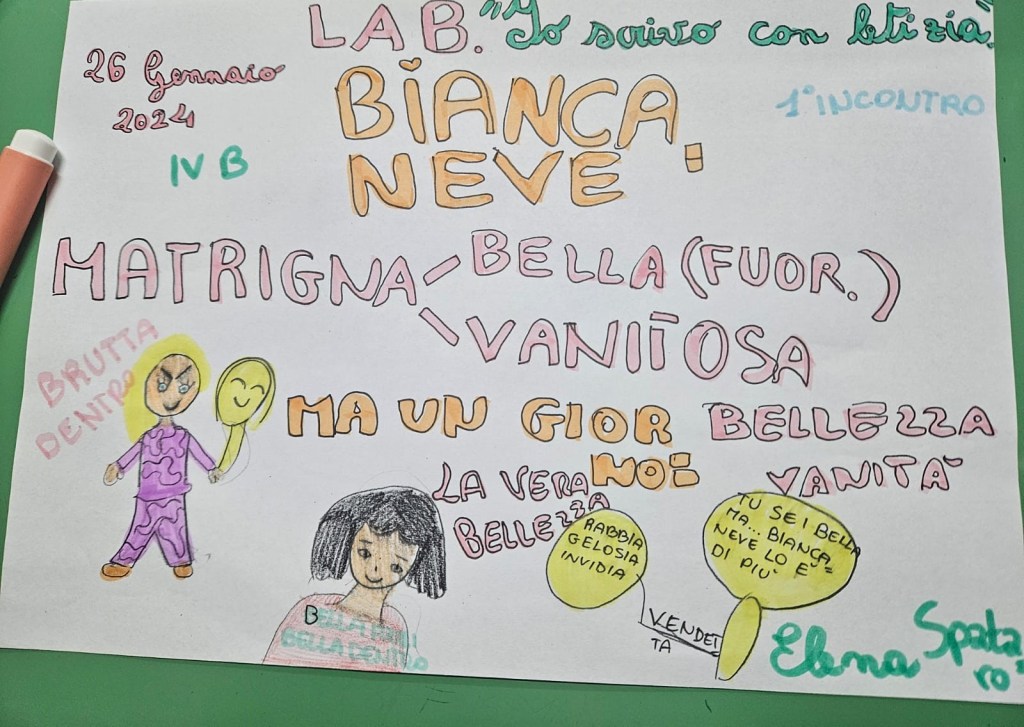 LAB. "Io scrivo con letizia"
26 Gennaio
2024
IV B
1° INCONTRO
BIANCA
NEVE:
MATRIGNA
BELLA (FUOR.)
VANITOSA
BRUTTA
DENTRO
MA UN GIOR
NO:
BELLEZZA
VANITÀ
LA VERA
BELLEZZA
RABBIA
GELOSIA
INVIDIA
VENDET
TA
TU SEI BELLA
MA... BIANCA=
NEVE LO È
DI PIÙ
BELLA FUORI
BELLA DENTRO
Elena Spata
ro